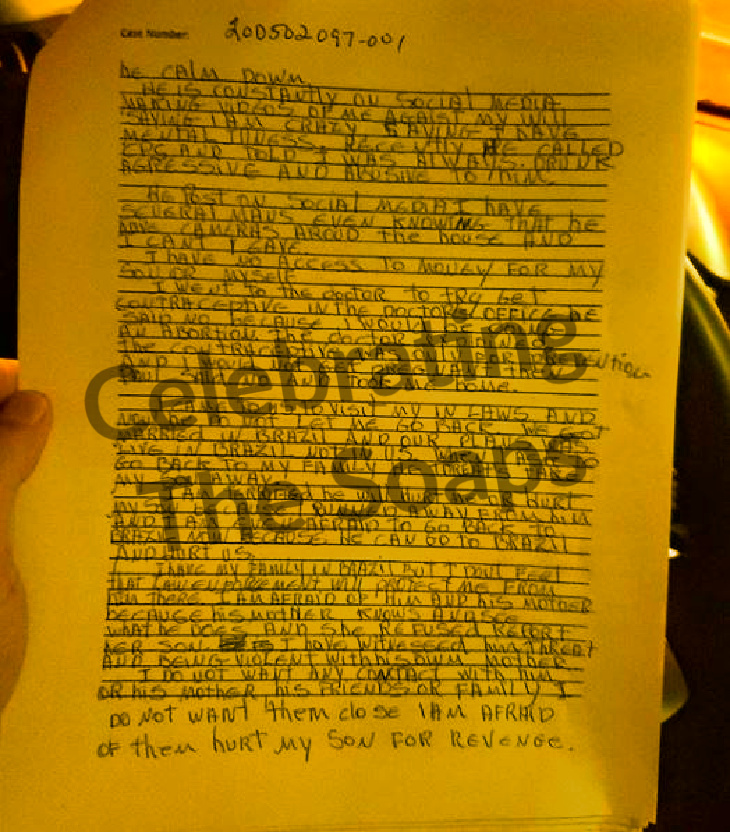 Case Number: 200502097-001
be CALM DOWN.
HE IS CONSTANTLY ON SOCIAL MEDIA
MAKING VIDEOS OF ME AGAIST MY WILL
SAYING I AM CRAZY SAYING I HAVE
MENTAL ILLNESS. RECENTLY HE CALLED
CPS AND TOLD I WAS ALWAYS DRUNK
AGRESSIVE AND ABUSIVE TO HIM.
HE POST ON SOCIAL MEDIA I HAVE
SEVERAL MANS EVEN KNOWING THAT HE
HAVE CAMERAS AROUD the house AND
I CAN'T LEAVE
I HAVE NO ACCESS TO MONEY FOR MY
SON OR MYSELF
I WENT TO the DOCTOR TO try GET
CONTRACEPTIVE IN THE DOCTORS OFFICE HE
SAID NO BECAUSE I WOULD BE
AN ABORTION. The DOCTOR
The CONTRACEPTIVE WAS ONLY FOR PREVENTION
AND I WOULD NOT GET PREGNANT THEN
PAUL SAID NO AND TOOK ME home.
TO VISIT MY IN LAWS AND
NOW HE DO NOT LET ME GO BACK. WE GOT
MARRIED IN BRAZIL AND OUR PLAN WAS
LIVE IN BRAZIL NOT IN US. WHEN I ASK TO
GO BACK TO MY FAMILY HE THREATS TAKE
MY SON AWAY.
I AM TERRIFIED he will hurt ME OR hurt
MY SON AWAY FROM HIM
AND I AM AFRAID TO GO BACK TO
BRAZIL NOW BECAUSE HE CAN GO TO BRAZIL
AND HURT US.
I HAVE MY FAMILY IN BRAZIL BUT I DONT FEEL
that LAW ENFORCEMENT WILL PROTECT ME FROM
him THERE. I AM AFRAID OF HIM AND HIS MOTHER
BECAUSE his MOTHER KNOWS AND SEE
WHAT HE DOES AND She REFUSED REPORT
HER SON. I HAVE WITNESSED him THREAT
AND BEING VIOLENT WITH HIS OWN MOTHER
I DO NOT WANT ANY CONTACT WITH him
OR his MOTHER his FRIENDS OR FAMILY I
DO NOT WANT them close I AM AFRAID
OF them hurt MY SON FOR REVENGE.
Celebrating
The Soaps